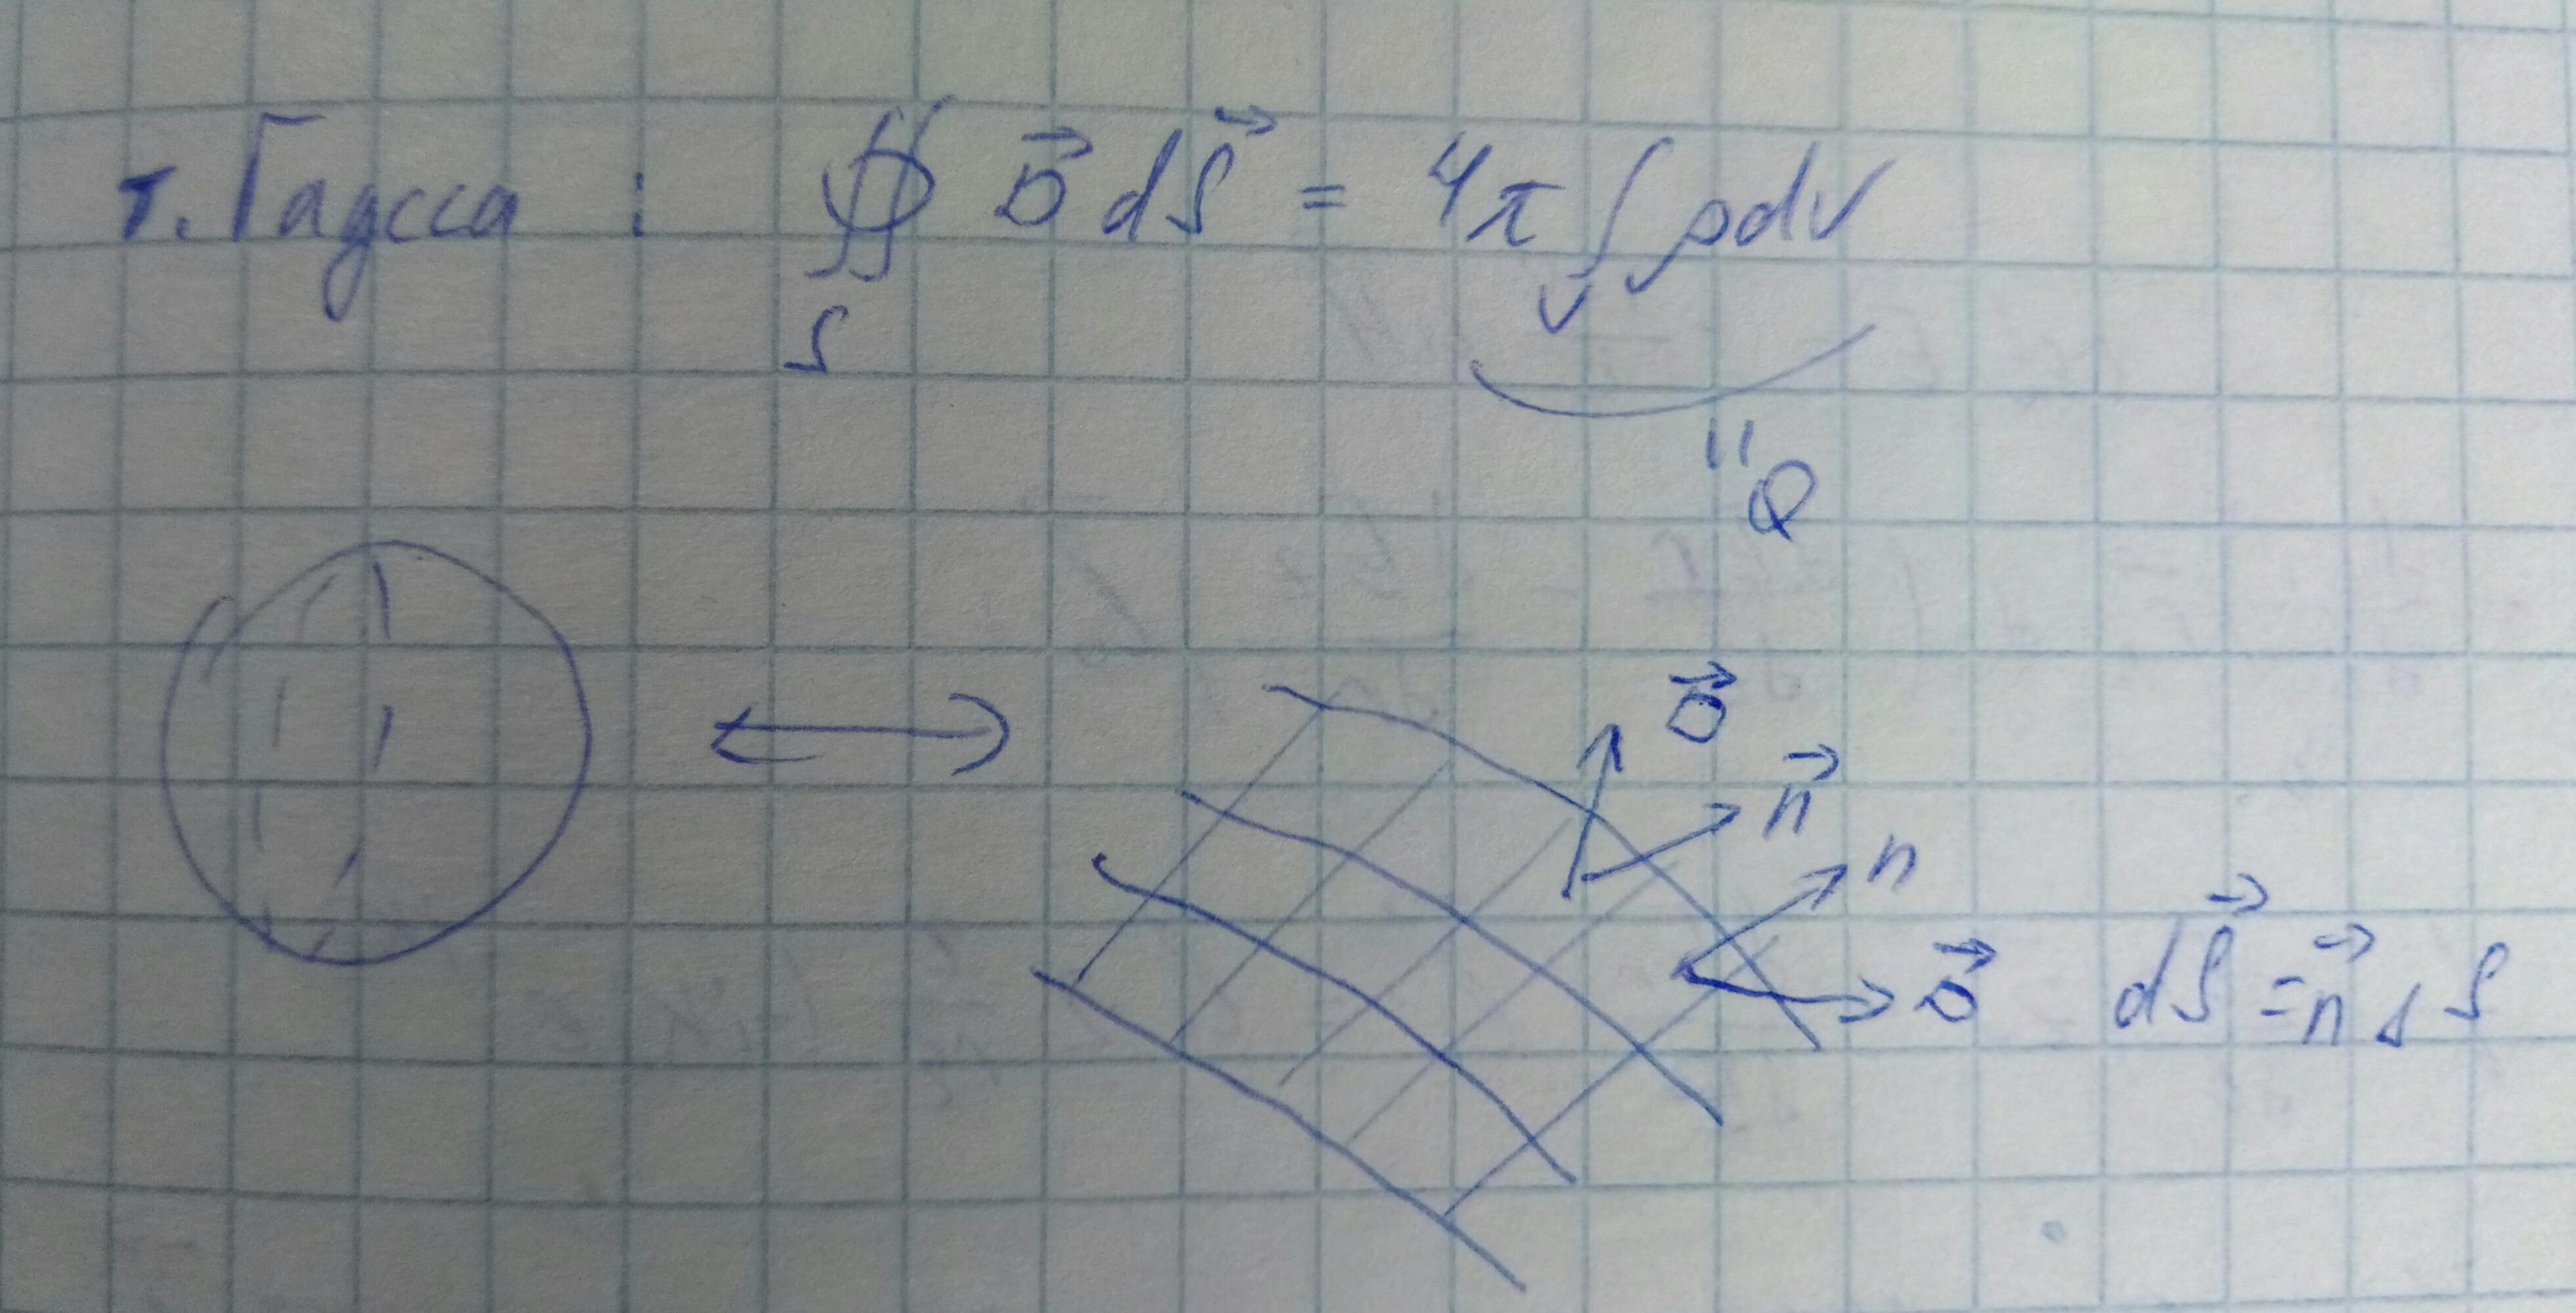 т. Гаусса : ∯ D⃗ dS⃗ = 4π ∫ ρdV
S V
"
Q
D⃗
n⃗
n
D⃗ dS⃗ = n⃗ dS